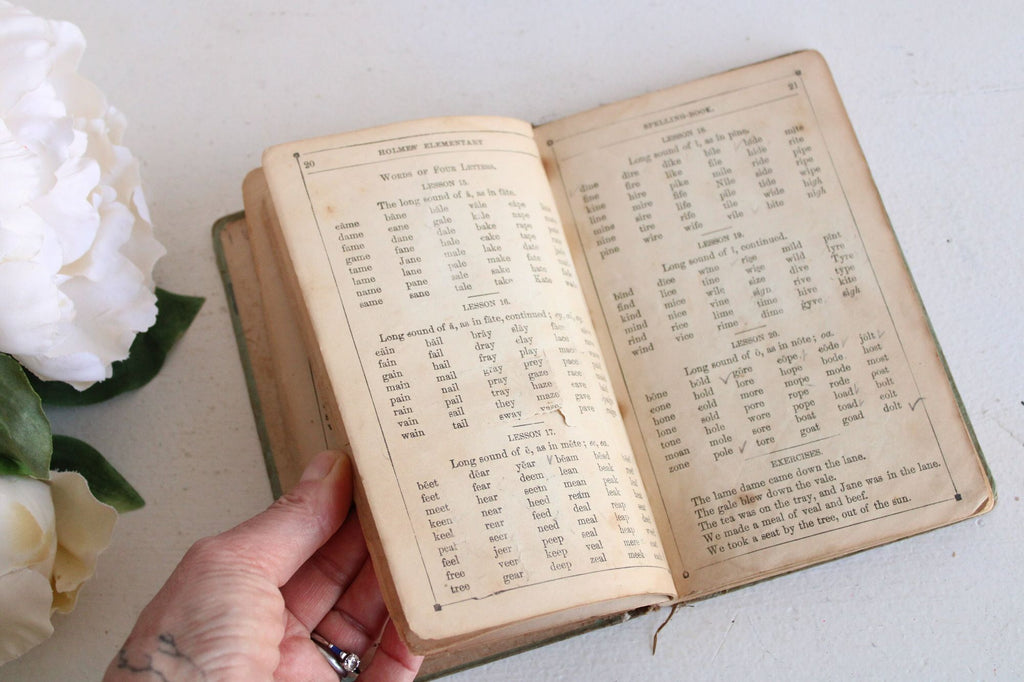 20 HOLMES' ELEMENTARY
WORDS OF FOUR LETTERS.
LESSON 15.
The long sound of ā, as in fāte.
cāme bāne bāle vāle cāpe
dame cane gale kale nape
fame dane dale bake rape
game fane hale cake tape
tame Jane male lake date
lame lane pale make fate
name pane sale sake hate
same sane tale take Kate
LESSON 16.
Long sound of ā, as in fāte, continued;
bāil brāy slāy face
fain fail dray clay lace
gain hail fray play mace
main mail gray prey pace
pain nail pray gaze race
rain pail tray haze cave
vain sail they maze gave
wain tail sway vase pave
LESSON 17.
Long sound of ē, as in mēte; ee, ea.
bēet dēar yēar bēam bēad
feet fear deem lean beak
meet hear seem mean peak
keen near heed ream leak
keel rear feed deal reap
peat seer need meal leap
feel jeer peep seal heap
free veer keep veal mere
tree gear deep zeal meek
SPELLING-BOOK. 21
LESSON 18.
Long sound of ī, as in pīne.
dine dire dike bile hide mite
fine fire like file rite
kine hire pike mile ride pipe
line mire life Nile side ripe
mine sire rife pile tide wipe
nine tire wife tile high
pine wire vile bite nigh
LESSON 19.
Long sound of ī, continued.
bīnd dice wine rise mild pint
find lice tine wise wild lyre
kind mice wile sign dive Tyre
mind nice vine rive type
rind rice lime time hive kite
wind vice dime gyve sigh
LESSON 20.
Long sound of ō, as in nōte; oa.
bōne bōld gōre cōpe cōde jōlt
cone lore hope bode host
hone more mope mode most
lone pore rope rode post
tone wore pope load bolt
moan mole sore boat toad colt
zone pole tore goat goad dolt
EXERCISES.
The lame dame came down the lane.
The gale blew down the vale.
The tea was on the tray, and Jane was in the lane.
We made a meal of veal and beef.
We took a seat by the tree, out of the sun.